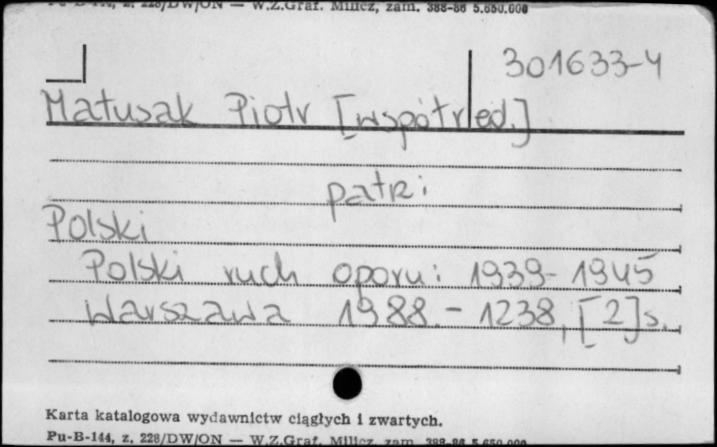 Pu-B-144, z. 228/DW/ON — W.Z.Graf. Milicz, zam. 388-86 5.650.000
301633-4
Matusak Piotr [współred.]
patrz:
Polski
Polski ruch oporu: 1939-1945
Warszawa 1988. - 1238, [2] s.
Karta katalogowa wydawnictw ciągłych i zwartych.
Pu-B-144, z. 228/DW/ON — W.Z.Graf. Milicz, zam. 388-86 5.650.000